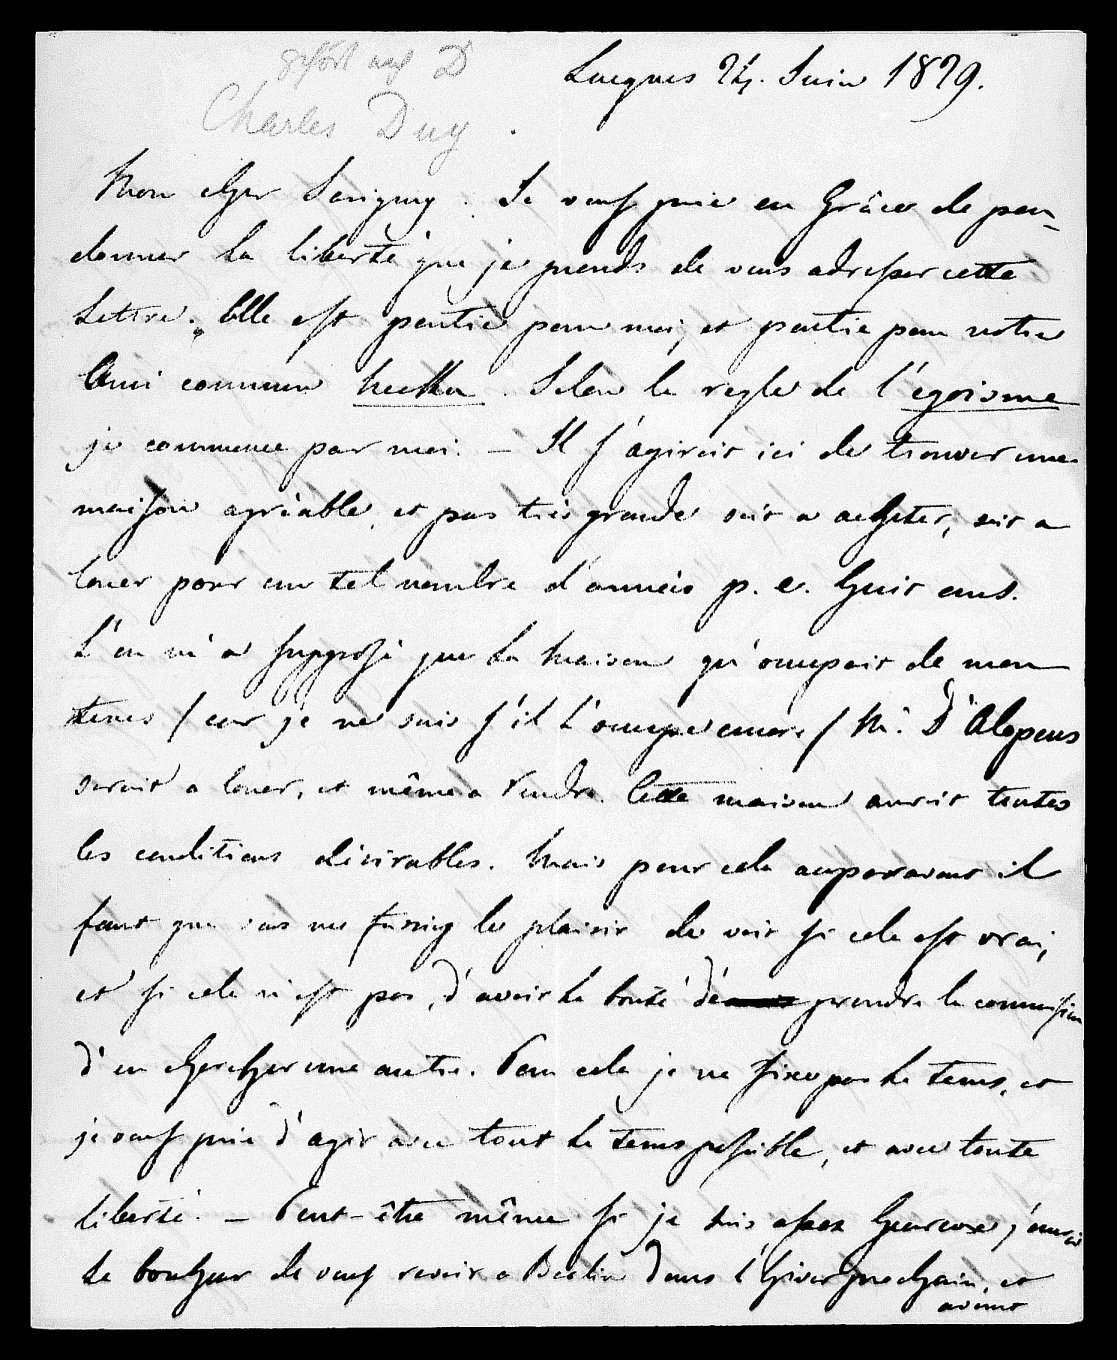 gehört auf D
Charles Duy.
Lucques 24. Juin 1829.
Mon cher Savigny. Je vous prie en grâce de par-
donner la liberté que je prends de vous adresser cette
Lettre. Elle est partie pour moi, et partie pour notre
Ami commun. Selon la regle de l'egoisme
je commence par moi. — Il s'agiroit ici de trouver une
maison agréable, et pas très grande soit a acheter, soit a
louer pour un tel nombre d'années p. e. huit ans.
L'on m'a supposé que la Maison qu'occupoit de mon
tems / car je ne sais s'il l'occupe encore / Mr. D'Alopeus
seroit a louer, et même a vendre. Cette maison auroit toutes
les conditions désirables. Mais pour cela auparavant il
faut que vous me fassiez le plaisir de voir si cela est vrai,
et si cela n'est pas, d'avoir la bonté de prendre la commission
d'en chercher une autre. Pour cela je ne fixe pas le tems, et
je vous prie d'agir avec tout le tems possible, et avec toute
liberté. — Peut-être même si je suis assez heureux j'aurai
le bonheur de vous revoir a Berlin dans l'hiver prochain, et
avant